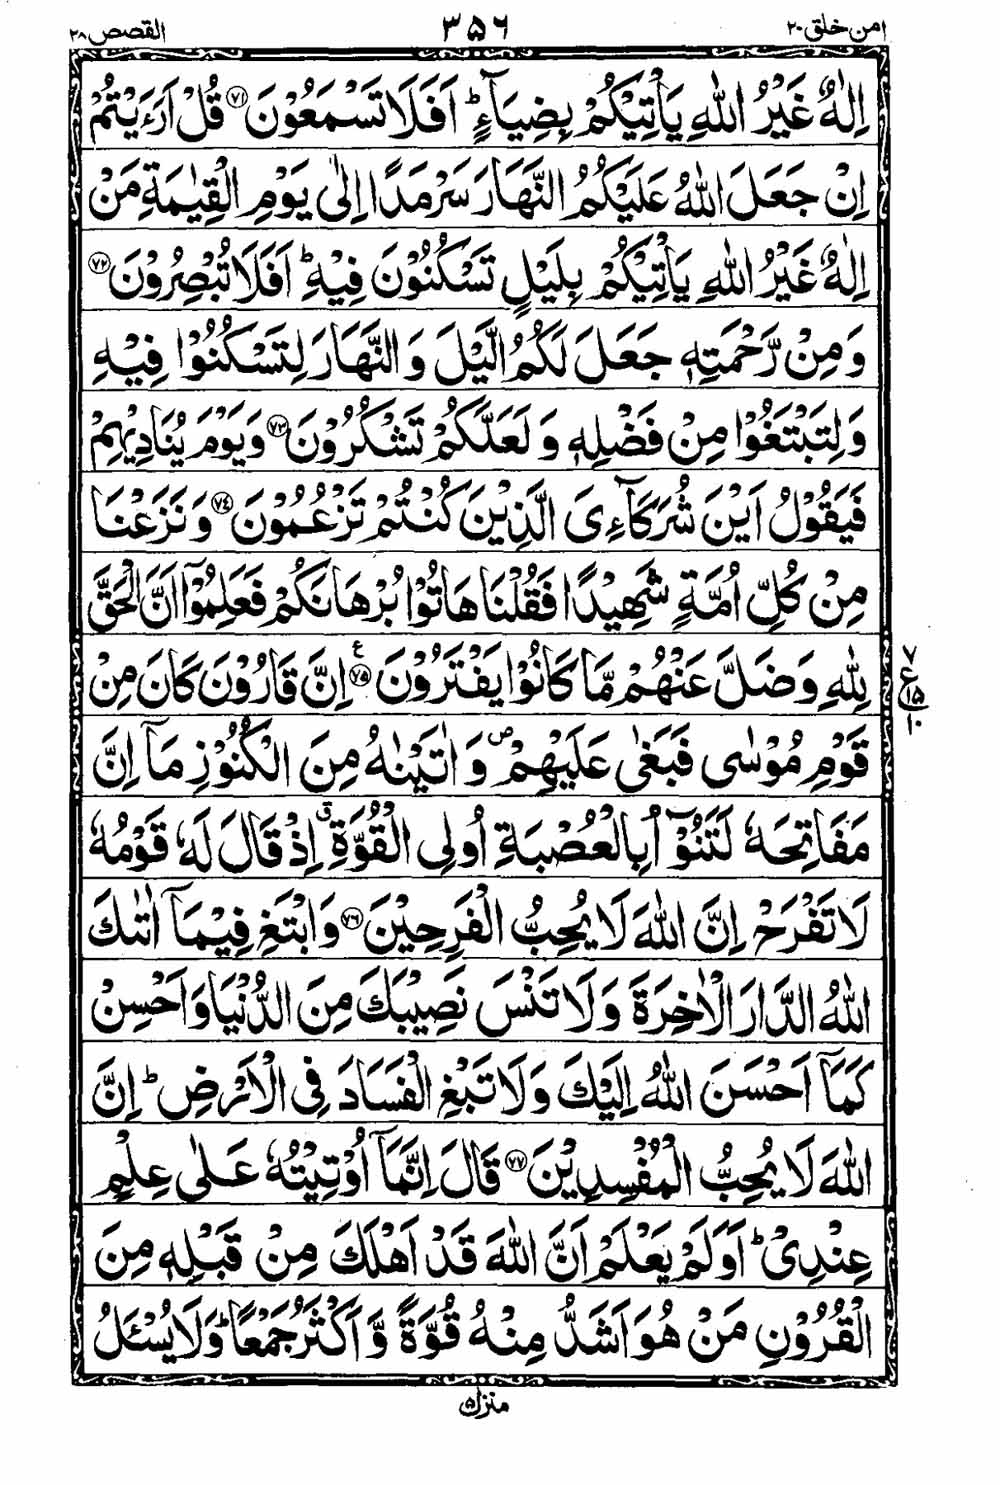 امن خلق ٢٠ ٣٥٦ القصص ٢٨
اِلٰهٌ غَيْرُ اللّٰهِ يَاْتِيْكُمْ بِضِيَآءٍ ؕ اَفَلَا تَسْمَعُوْنَ ﴿٧١﴾ قُلْ اَرَءَيْتُمْ
اِنْ جَعَلَ اللّٰهُ عَلَيْكُمُ النَّهَارَ سَرْمَدًا اِلٰى يَوْمِ الْقِيٰمَةِ مَنْ
اِلٰهٌ غَيْرُ اللّٰهِ يَاْتِيْكُمْ بِلَيْلٍ تَسْكُنُوْنَ فِيْهِ ؕ اَفَلَا تُبْصِرُوْنَ ﴿٧٢﴾
وَ مِنْ رَّحْمَتِهٖ جَعَلَ لَكُمُ الَّيْلَ وَ النَّهَارَ لِتَسْكُنُوْا فِيْهِ
وَ لِتَبْتَغُوْا مِنْ فَضْلِهٖ وَ لَعَلَّكُمْ تَشْكُرُوْنَ ﴿٧٣﴾ وَ يَوْمَ يُنَادِيْهِمْ
فَيَقُوْلُ اَيْنَ شُرَكَآءِىَ الَّذِيْنَ كُنْتُمْ تَزْعُمُوْنَ ﴿٧٤﴾ وَ نَزَعْنَا
مِنْ كُلِّ اُمَّةٍ شَهِيْدًا فَقُلْنَا هَاتُوْا بُرْهَانَكُمْ فَعَلِمُوْٓا اَنَّ الْحَقَّ
لِلّٰهِ وَ ضَلَّ عَنْهُمْ مَّا كَانُوْا يَفْتَرُوْنَ ﴿٧٥﴾ ع اِنَّ قَارُوْنَ كَانَ مِنْ
٧ ع ١٥ ١٠
قَوْمِ مُوْسٰى فَبَغٰى عَلَيْهِمْ ص وَ اٰتَيْنٰهُ مِنَ الْكُنُوْزِ مَآ اِنَّ
مَفَاتِحَهٗ لَتَنُوْٓاُ بِالْعُصْبَةِ اُولِى الْقُوَّةِ ق اِذْ قَالَ لَهٗ قَوْمُهٗ
لَا تَفْرَحْ اِنَّ اللّٰهَ لَا يُحِبُّ الْفَرِحِيْنَ ﴿٧٦﴾ وَ ابْتَغِ فِيْمَآ اٰتٰىكَ
اللّٰهُ الدَّارَ الْاٰخِرَةَ وَ لَا تَنْسَ نَصِيْبَكَ مِنَ الدُّنْيَا وَ اَحْسِنْ
كَمَآ اَحْسَنَ اللّٰهُ اِلَيْكَ وَ لَا تَبْغِ الْفَسَادَ فِى الْاَرْضِ ؕ اِنَّ
اللّٰهَ لَا يُحِبُّ الْمُفْسِدِيْنَ ﴿٧٧﴾ قَالَ اِنَّمَآ اُوْتِيْتُهٗ عَلٰى عِلْمٍ
عِنْدِىْ ؕ اَوَ لَمْ يَعْلَمْ اَنَّ اللّٰهَ قَدْ اَهْلَكَ مِنْ قَبْلِهٖ مِنَ
الْقُرُوْنِ مَنْ هُوَ اَشَدُّ مِنْهُ قُوَّةً وَّ اَكْثَرُ جَمْعًا ؕ وَ لَا يُسْـَٔلُ
منزل ٥